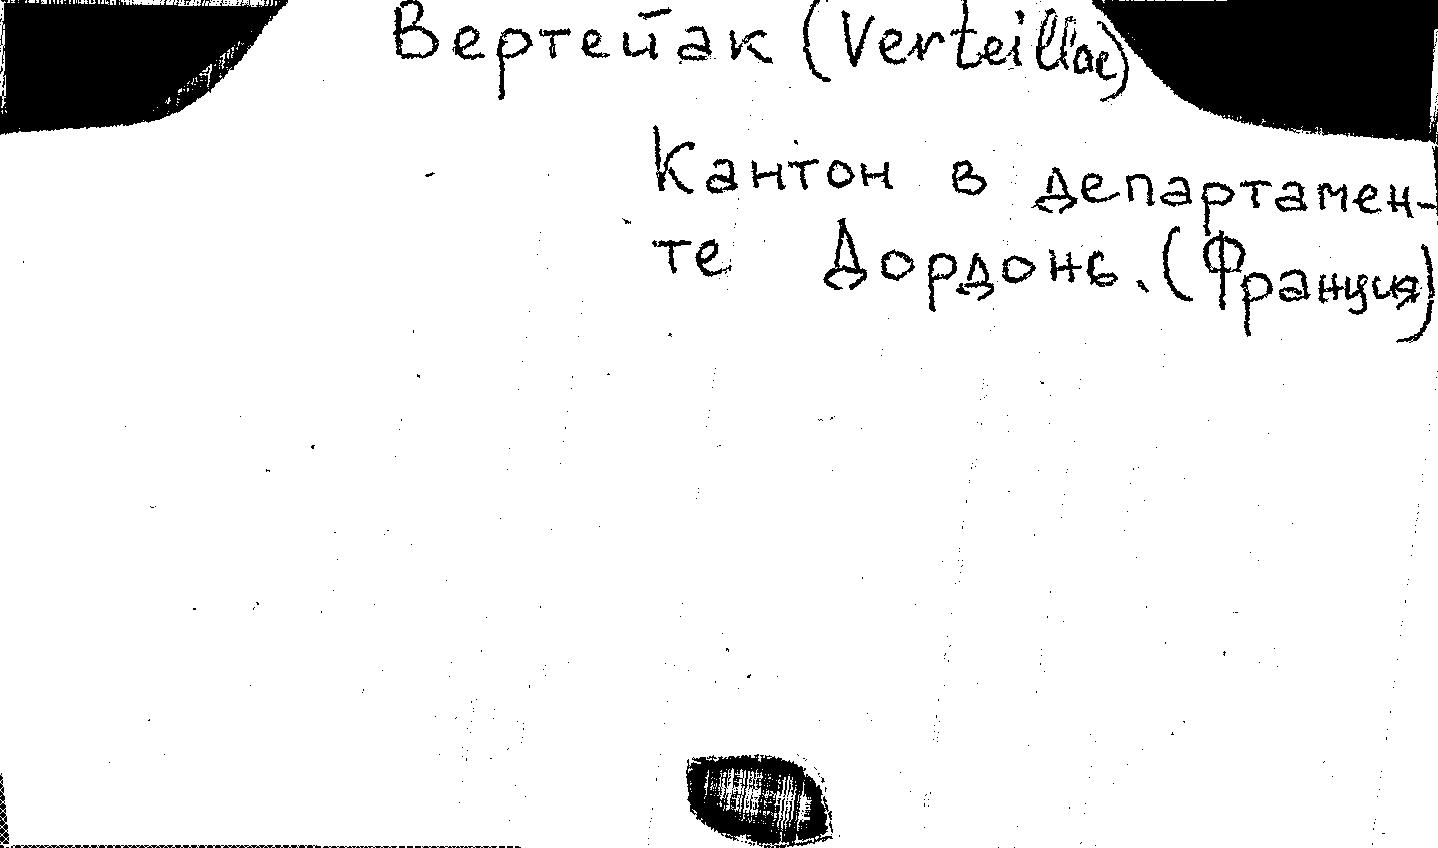 Вертейак (Verteillac)
Кантон в департамен-
те Дордонь. (Франция)